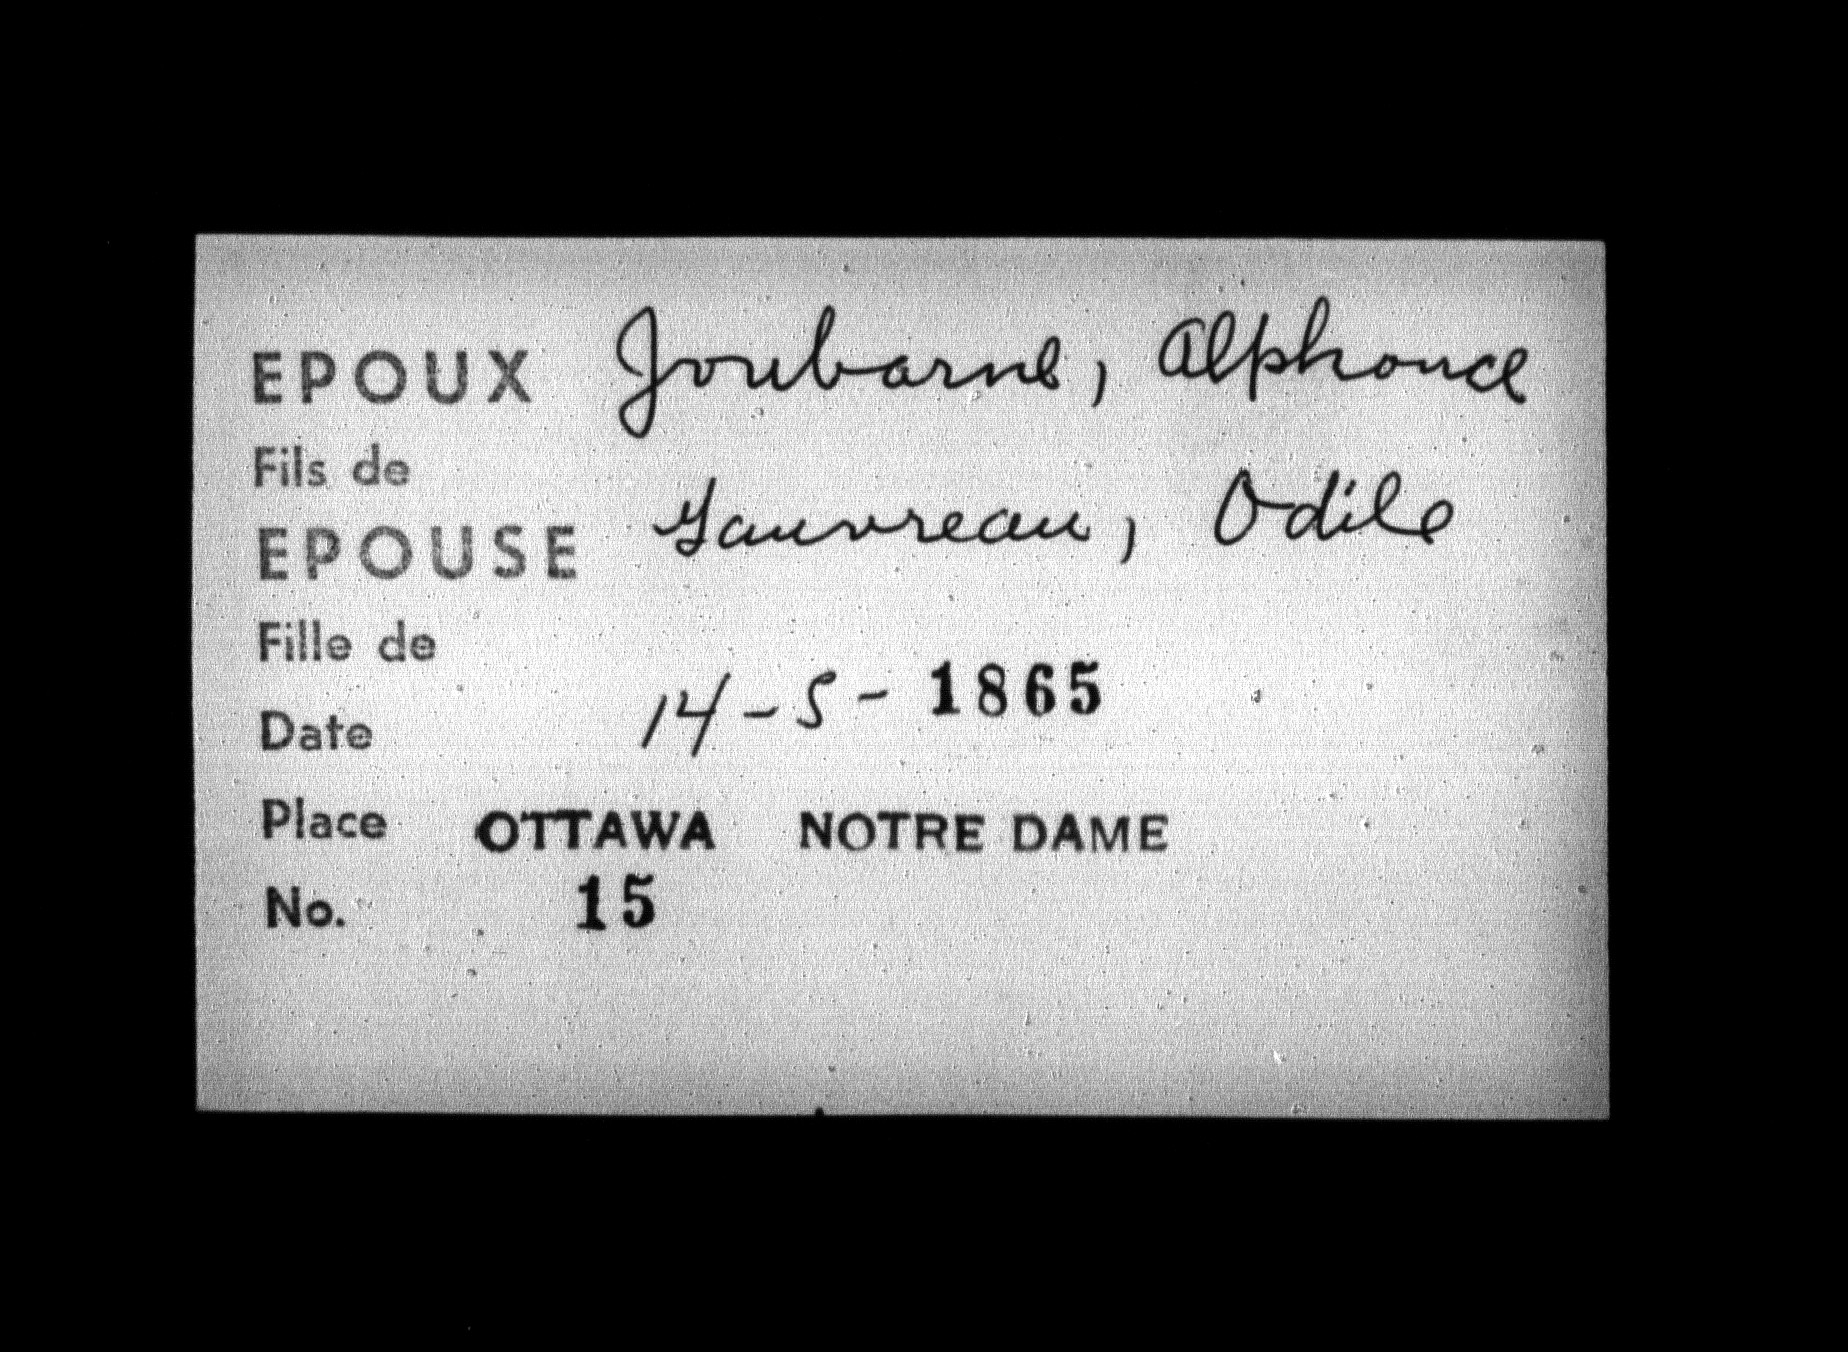 EPOUX Joubarne, Alphonce
Fils de
EPOUSE Gauvreau, Odile
Fille de
Date 14-5-1865
Place OTTAWA NOTRE DAME
No. 15